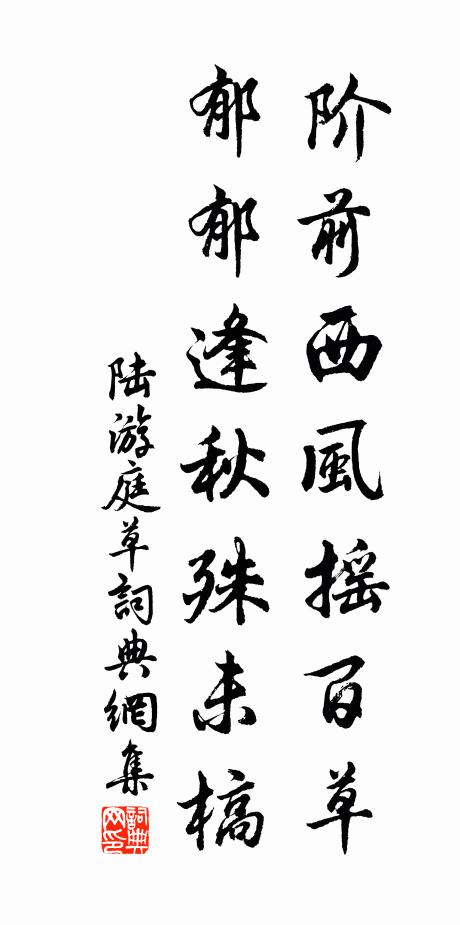 阶前西風摇百草
郁郁逢秋殊未槁
陆游庭草詞典網集
詞典网印